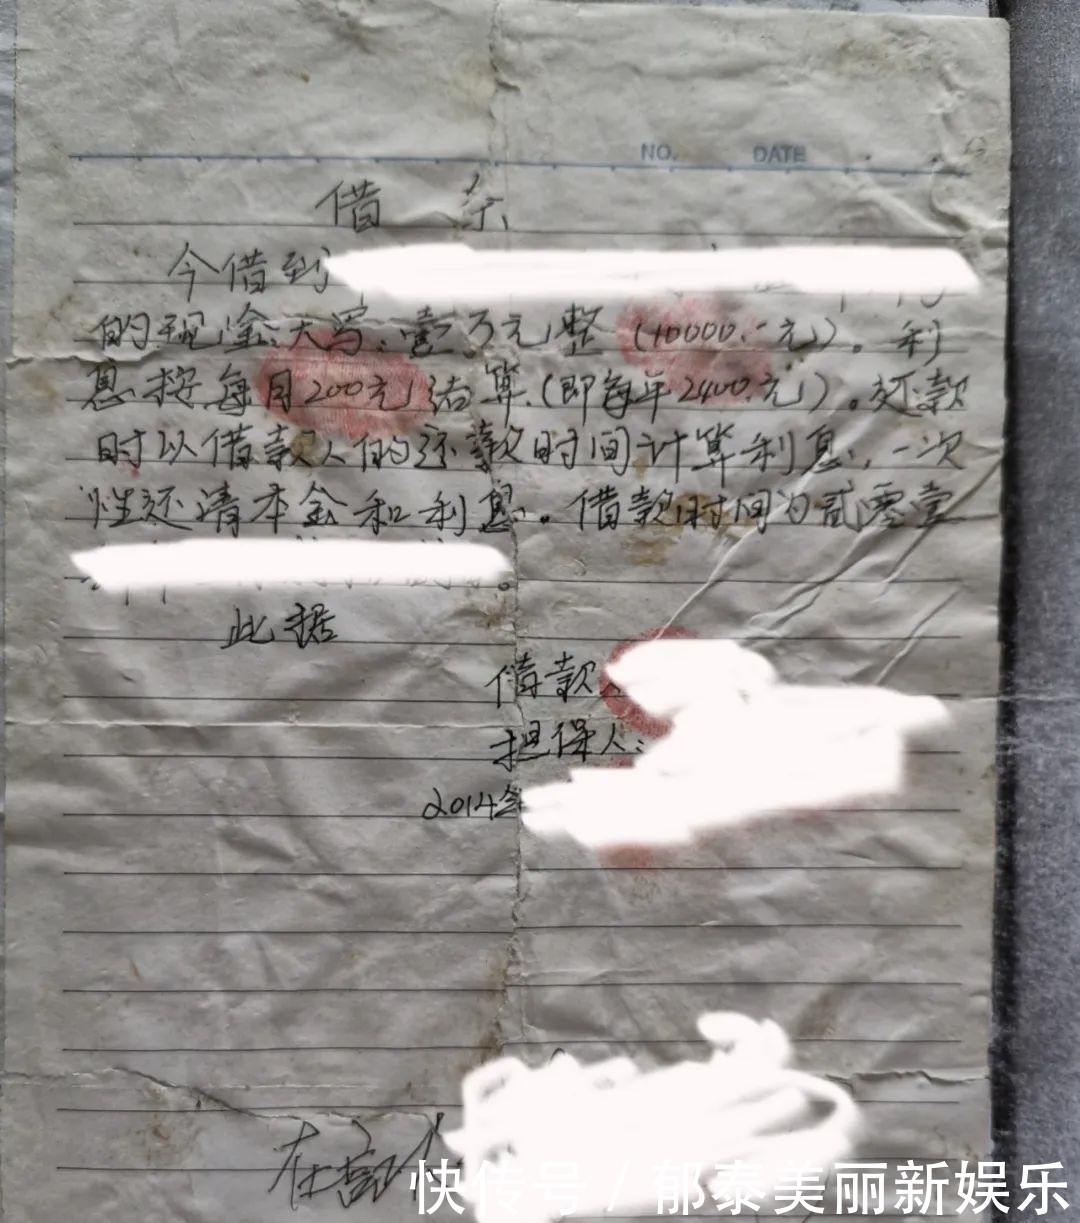 NO. DATE
借 条
今借到
的现金:大写:壹万元整(10000.-元)。利
息按每月200元结算(即每年2400.元)。还款
时以借款人的还款时间计算利息,一次
性还清本金和利息。借款时间为贰零壹
。
此据
借款
担保人:
2014年
快传号/郁泰美丽新娱乐